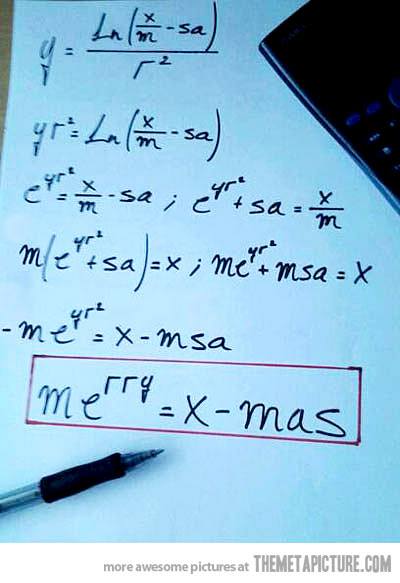 y = ln(x/m - sa) / r²
yr² = ln(x/m - sa)
e^yr² = x/m - sa ; e^yr² + sa = x/m
m(e^yr² + sa) = x ; me^yr² + msa = x
- me^yr² = x - msa
me^rry = x - mas
more awesome pictures at THEMETAPICTURE.COM